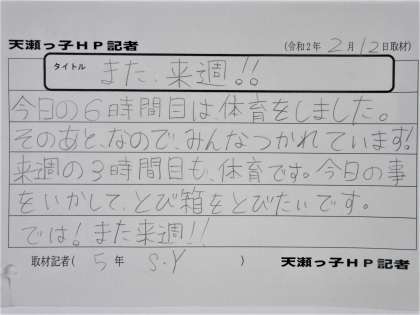 天瀬っ子HP記者 (令和2年 2月12日取材)
タイトル また、来週!!
今日の6時間目は、体育をしました。
そのあと、なので、みんなつかれています!
来週の3時間目も、体育です。今日の事
をいかして、とび箱をとびたいです。
では!また来週!!
取材記者( 5年 S.Y ) 天瀬っ子HP記者